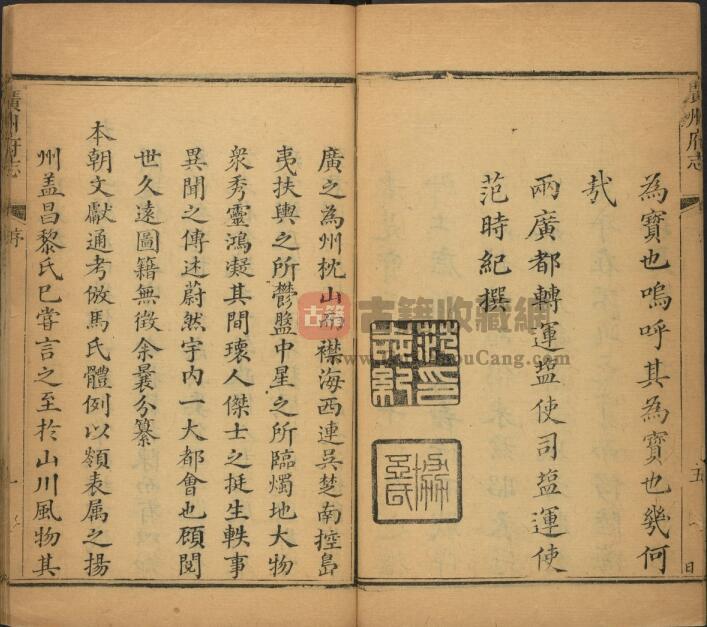 廣州府志
五
為寶也嗚呼其為寶也幾何
㢤
兩廣都轉運塩使司塩運使
范時紀撰
范印
時紀
廣之為州枕山而襟海西連吳楚南控島
夷扶輿之所鬱盤中星之所臨燭地大物
衆秀靈鴻凝其間瓌人傑士之挺生軼事
異聞之傳述蔚然宇内一大都會也顧閲
世久遠圖籍無徵余曩分纂
本朝文獻通考倣馬氏體例以嶺表属之揚
州盖昌黎氏已甞言之至於山川風物其
廣州府志
序
一
古籍
古籍收藏網